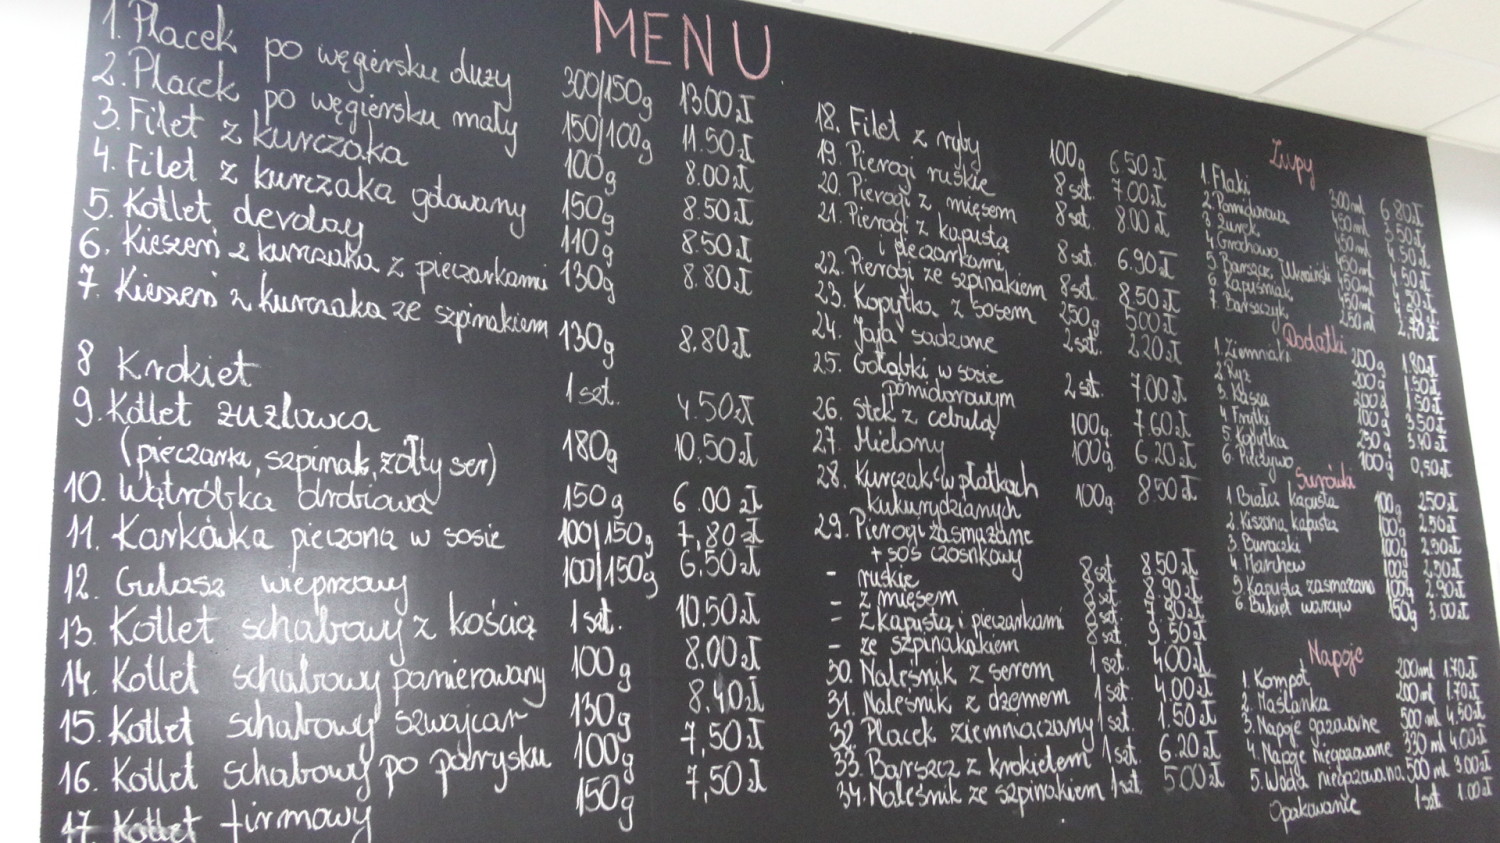 MENU
1. Placek po węgiersku duży 300/150g 13.00zł
2. Placek po węgiersku mały 150/100g 11.50zł
3. Filet z kurczaka 100g 8.00zł
4. Filet z kurczaka gotowany 150g 8.50zł
5. Kotlet devolay 110g 8.50zł
6. Kieszeń z kurczaka z pieczarkami 130g 8.80zł
7. Kieszeń z kurczaka ze szpinakiem 130g 8.80zł
8 Krokiet 1 szt. 4.50zł
9. Kotlet zuzlowca 180g 10,50zł
(pieczarki, szpinak, żółty ser)
10. Wątróbka drobiowa 150g 6.00zł
11. Karkówka pieczona w sosie 100/150g 7,80zł
12. Gulasz wieprzowy 100/150g 6.50zł
13. Kotlet schabowy z kością 1 szt. 10.50zł
14. Kotlet schabowy panierowany 100g 8.00zł
15. Kotlet schabowy szwajcar 130g 8.40zł
16. Kotlet schabowy po parysku 100g 7,50zł
17. Kotlet firmowy 150g 7,50zł
18. Filet z ryby 100g 6.50zł
19. Pierogi ruskie 8 szt. 7.00zł
20. Pierogi z mięsem 8 szt. 8.00zł
21. Pierogi z kapustą
i pieczarkami 8 szt. 6.90zł
22. Pierogi ze szpinakiem 8 szt. 8.50zł
23. Kopytka z sosem 250g 5.00zł
24. Jaja sadzone 2 szt. 2.20zł
25. Gołąbki w sosie
pomidorowym 2 szt. 7.00zł
26. Stek z cebulą 100g 7.60zł
27. Mielony 100g 6.20zł
28. Kurczak w płatkach
kukurydzianych 100g 8.50zł
29. Pierogi zasmażane
+ sos czosnkowy
- ruskie 8 szt 8.50zł
- z mięsem
- z kapustą i pieczarkami
- ze szpinakiem
30. Naleśnik z serem 1 szt. 4.00zł
31. Naleśnik z dżemem 1 szt. 4.00zł
32. Placek ziemniaczany 1 szt. 1.50zł
33. Barszcz z krokietem 1 szt. 6.20zł
34. Naleśnik ze szpinakiem 1 szt. 5.00zł
Zupy
1. Flaki 300ml 6.80zł
2. Pomidorowa 450ml 3.50zł
3. Żurek 450ml 4.50zł
4. Grochowa 450ml 4.50zł
5. Barszcz Ukraiński 450ml
6. Kapuśniak 450ml
7. Barszczyk 250ml 2,70zł
Dodatki
1. Ziemniaki 200g 1.80zł
2. Ryż 200g 1.50zł
3. Kasza 200g 1.50zł
4. Frytki 100g 3.50zł
5. Kopytka 250g
6. Pieczywo 100g 0,50zł
Surówki
1 Biała kapusta 100g 2.50zł
2. Kiszona kapusta 100g 2.50zł
3. Buraczki 100g 2.50zł
4. Marchew 100g 2.50zł
5. Kapusta zasmażana 100g 2.90zł
6. Bukiet warzyw 150g 3.00zł
Napoje
1. Kompot 200ml 1.70zł
2. Maślanka 200ml 1.70zł
3. Napoje gazowane 500ml 4.50zł
4. Napoje niegazowane 330ml 4.00zł
5. Woda niegazowana 500ml 3.00zł
Opakowanie 1 szt 1.00zł